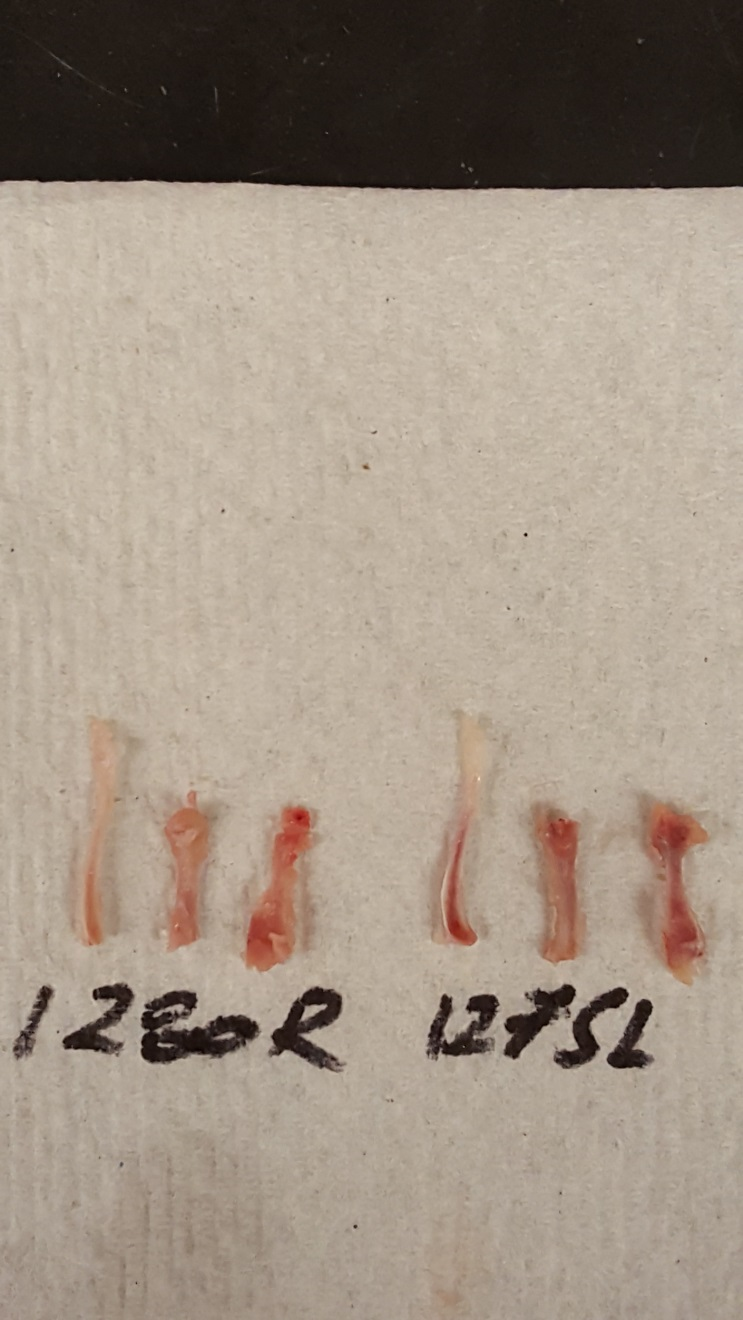 1280R 1275L